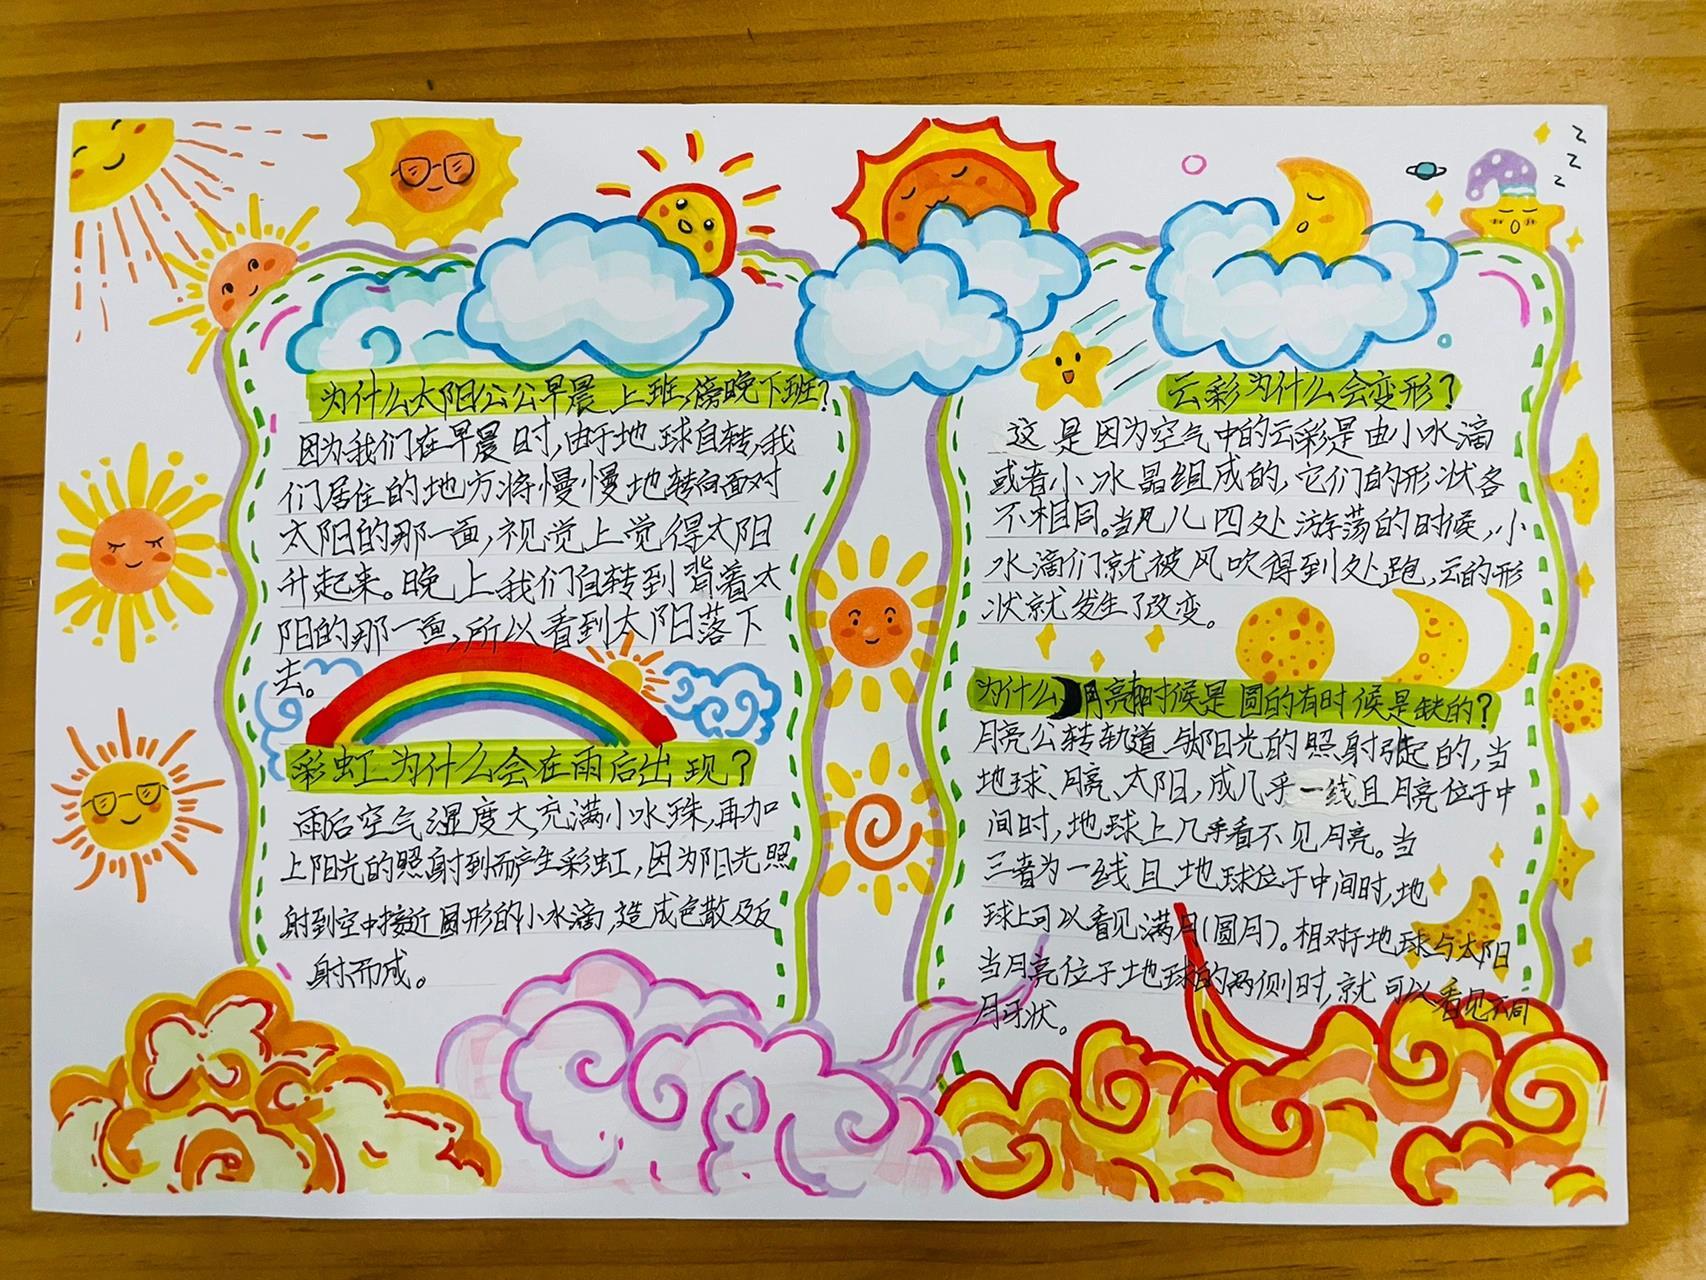 为什么太阳公公早晨上班,傍晚下班?
因为我们在早晨时,由于地球自转,我
们居住的地方将慢慢地转向面对
太阳的那一面,视觉上觉得太阳
升起来。晚上我们自转到背着太
阳的那一面,所以看到太阳落下
去。
彩虹为什么会在雨后出现?
雨后空气湿度大,充满小水珠,再加
上阳光的照射到而产生彩虹,因为阳光照
射到空中接近圆形的小水滴,造成色散及反
射而成。
云彩为什么会变形?
这是因为空气中的云彩是由小水滴
或者小冰晶组成的,它们的形状各
不相同。当风儿四处游荡的时候,小
水滴们就被风吹得到处跑,云的形
状就发生了改变。
为什么月亮有时候是圆的有时候是缺的?
月亮公转轨道与太阳光的照射引起的,当
地球、月亮、太阳,成几乎一线且月亮位于中
间时,地球上几乎看不见月亮。当
三者为一线且地球位于中间时,地
球上可以看见满月(圆月)。相对于地球与太阳
当月亮位于地球的两侧时,就可以看见不同
月牙状。
z
z
z